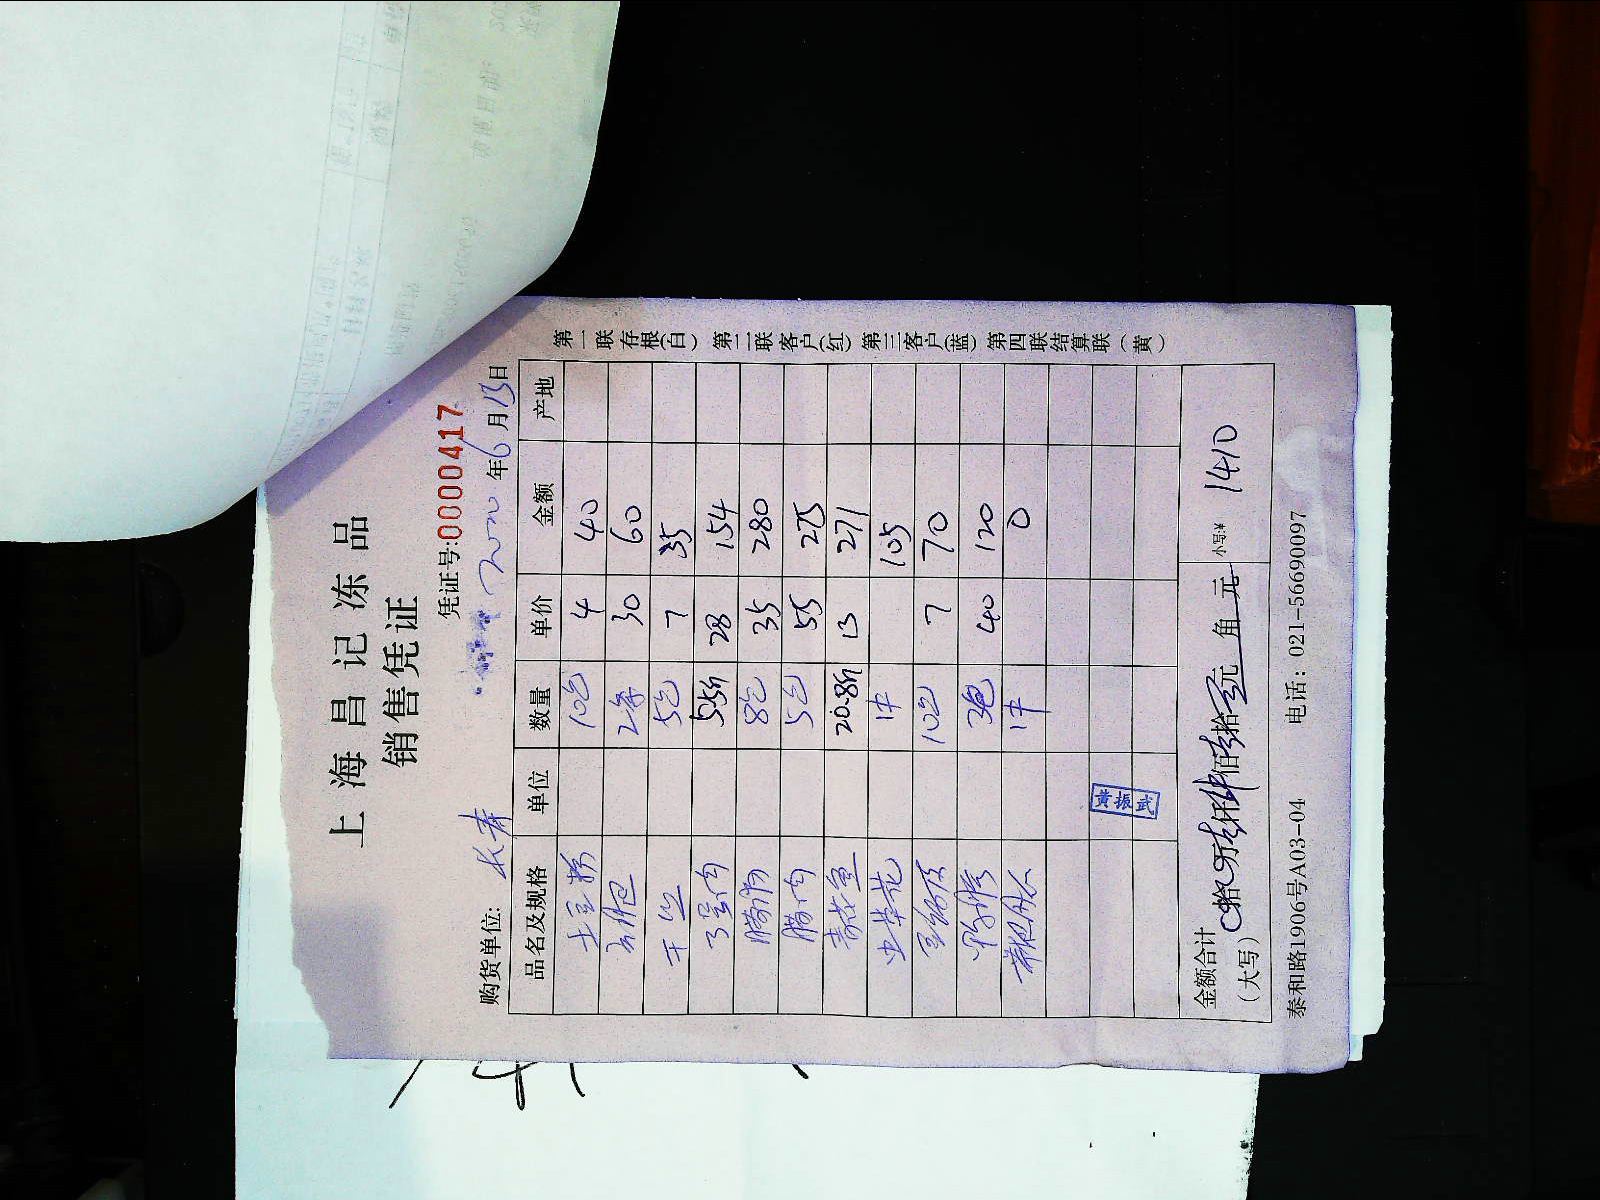 上海昌记冻品
销售凭证
凭证号:0000417
购货单位: 长寿 2020年6月13日
品名及规格 单位 数量 单价 金额 产地
土豆粉 10包 4 40
2条 30 60
5包 7 35
5.5斤 28 154
腊肠 8包 35 280
腊肉 5包 55 275
青花鱼 20.8斤 13 271
虫草花 1件 105
10包 7 70
3包 40 120
1件 0
黄振武
金额合计
(大写) 拾 万 仟 佰 拾 元 角 元 小写:¥ 1410
泰和路1906号A03-04 电话: 021-56690097
第一联存根(白) 第二联客户(红) 第三客户(蓝) 第四联结算联(黄)